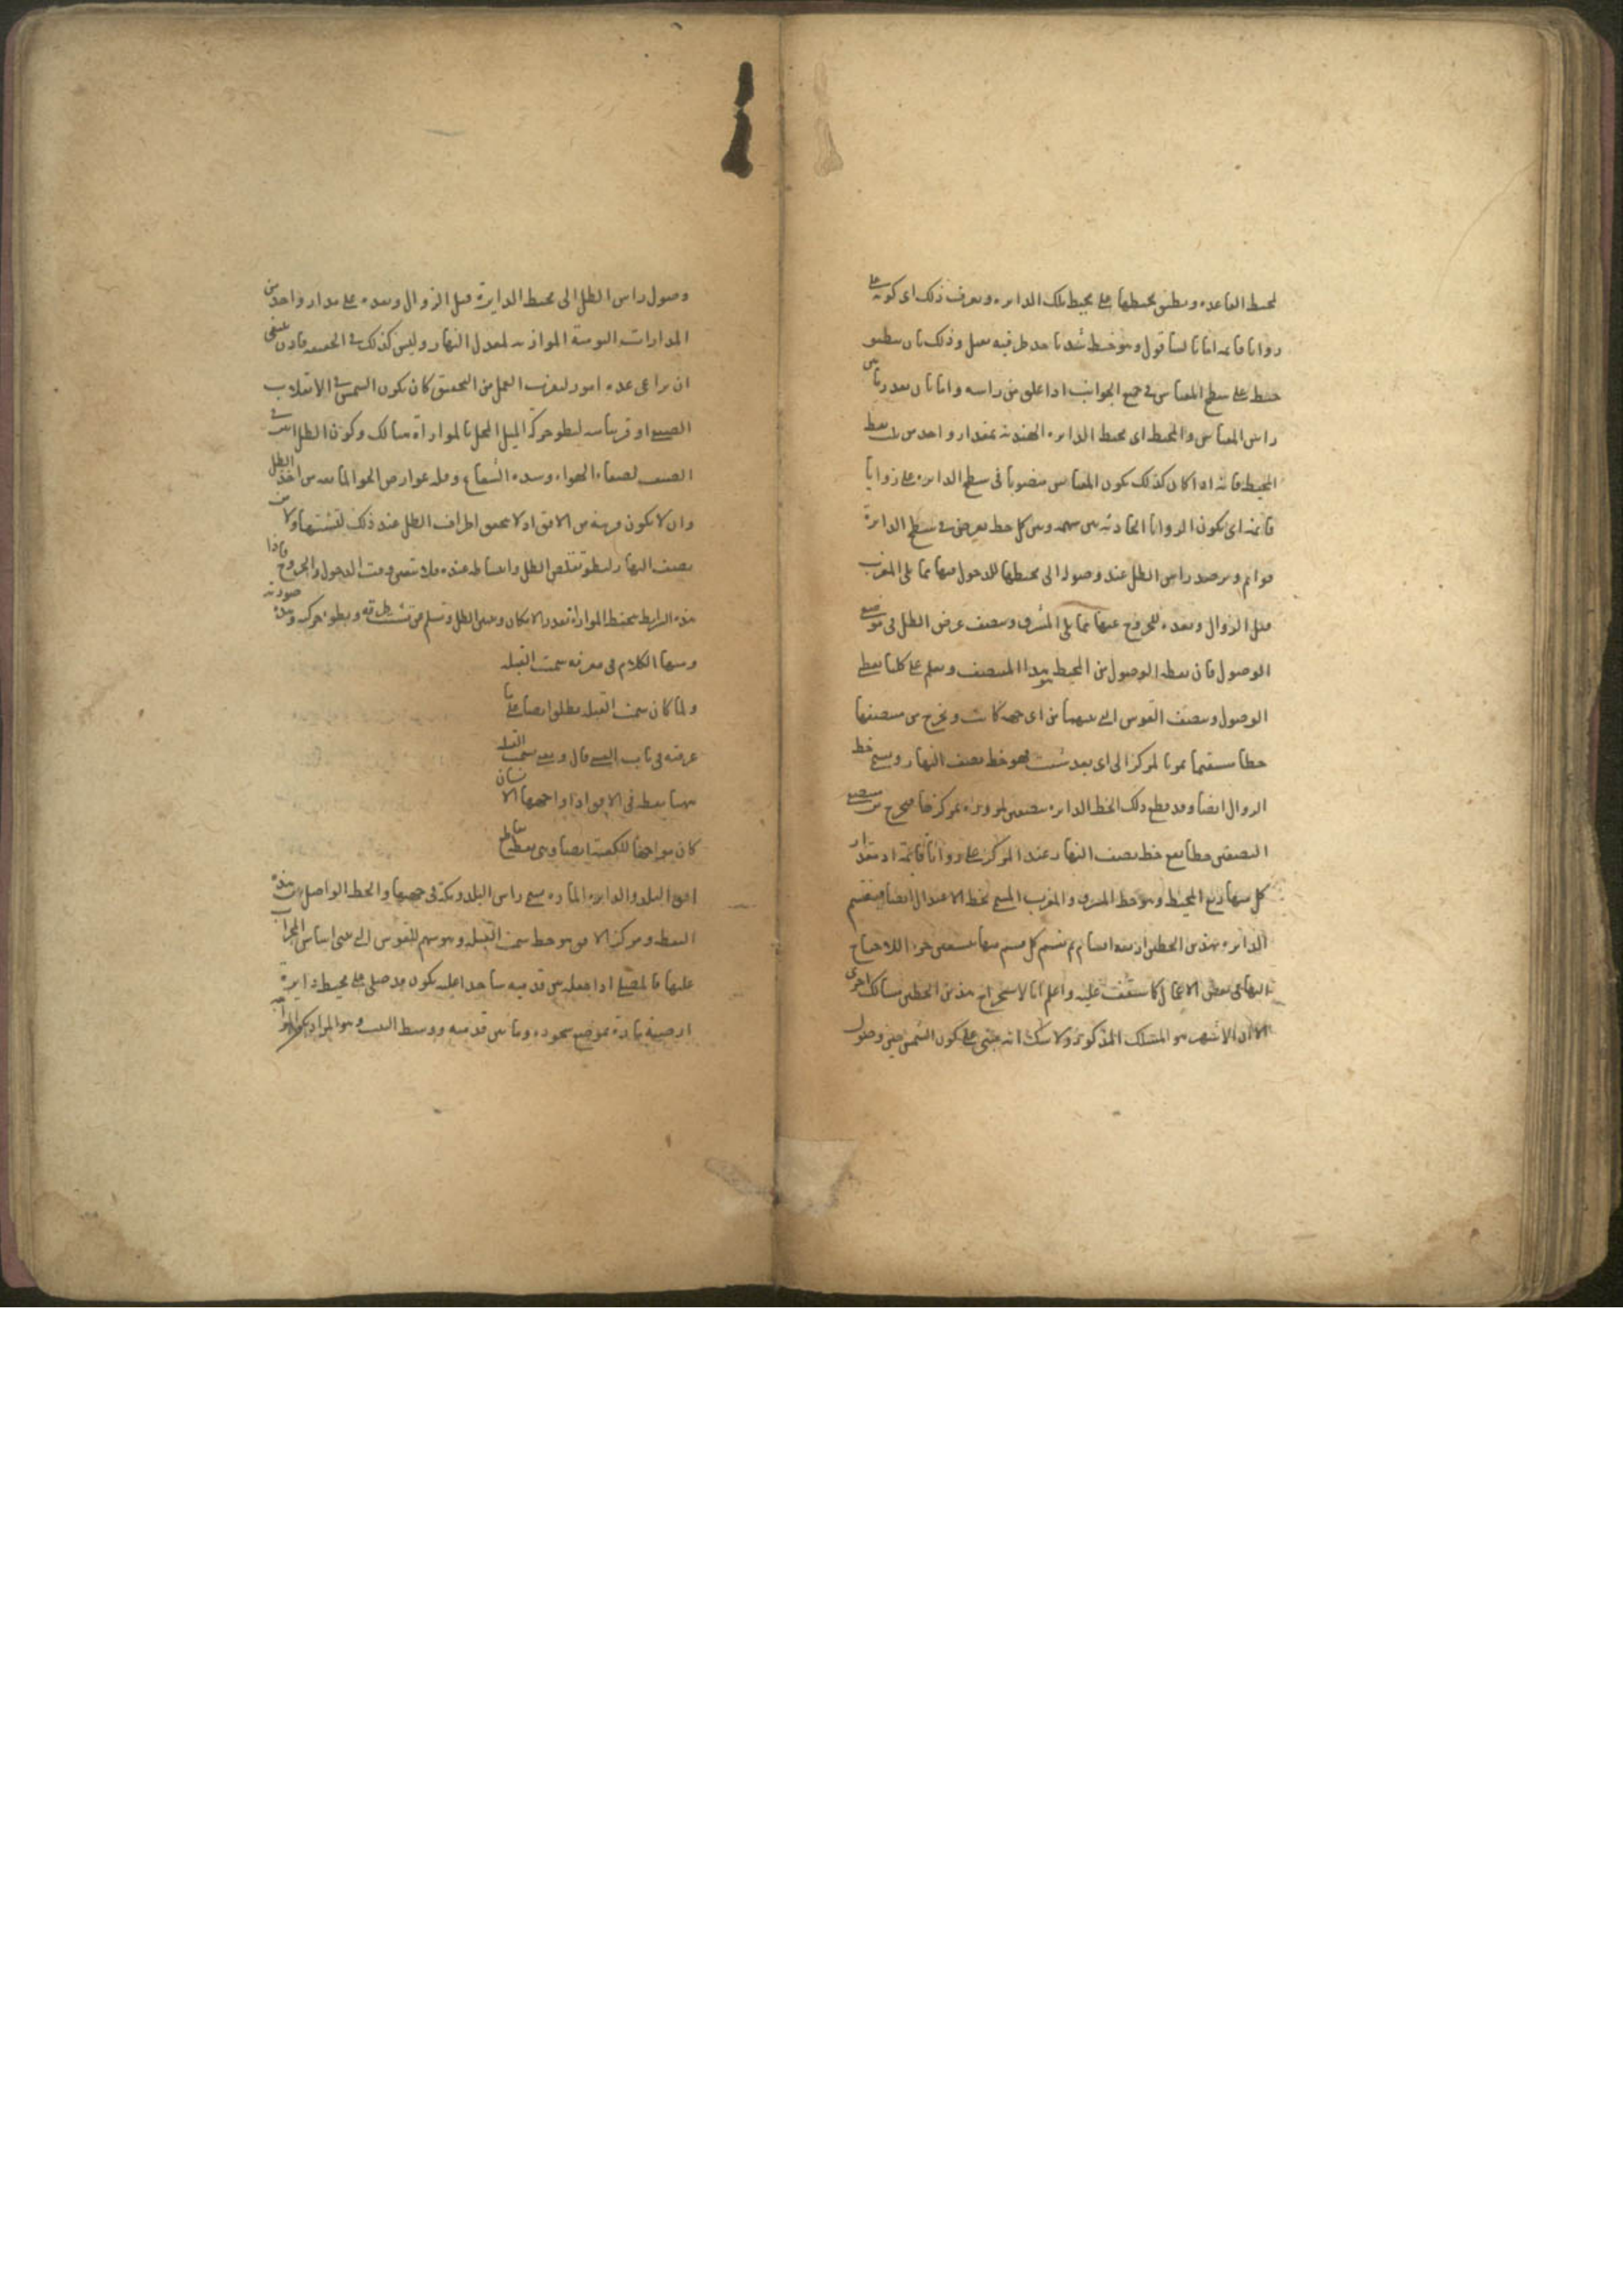 لمحيط القاعده وينطبق محيطها على محيط تلك الدايره ويعرف ذلك اى كونه على
زوايا قايمه اما بالشاقول وهو خيط شد باحد طرفيه ثقيل وذلك بان ينطبق
خيطه على سطح المقياس فى جميع الجوانب اذا علق من راسه واما بان يقدر ما بين
راس المقياس والمحيط اى محيط الدايره الهنديه بمقدار واحد من ثلث نقط
المحيط فانه اذا كان كذلك يكون المقياس منصوبا فى سطح الدايره على زوايا
قائمة اى يكون الزوايا الحادثه بين سهمه وبين كل خط يفرض فى سطح الدايرة
قوايم ويرصد راس الظل عند وصوله الى محيطها للدخول فيها مما يلى المغرب
قبل الزوال وبعده للخروج عنها مما يلى المشرق وينصف عرض الظل فى موضع
الوصول فان نقطه الوصول من المحيط هو هذا المنتصف ويعلم على كلتا نقطتى
الوصول وينصف القوس التى بينهما من اى جهة كانت ويخرج من منتصفها
خطا مستقيما يمر بالمركز الى اى بعد شئت فهو خط نصف النهار ويسمى خط
الزوال ايضا وقد قطع ذلك الخط الدايره بنصفين لمروره بمركزها فيخرج من منتصفى
النصفين خطا يقطع خط نصف النهار عند المركز على زوايا قائمة اذ مقدار
كل منها ربع المحيط وهو خط المشرق والمغرب المسمى بخط الاعتدال ايضا فينقسم
الدايره بهذين الخطين اربعه اقسام ثم يقسم كل قسم منها بتسعين جزءا للاحتياج
اليها فى بعض الاعمال كما ستقف عليه واعلم انا لاستخراج هذين الخطين مسالك اخرى
الا ان الاشهر هو المسلك المذكور ولا شك انه مبنى على كون الشمس حين وصول
وصول راس الظل الى محيط الدايرة قبل الزوال وبعده على مدار واحد من
المدارات اليومية الموازيه لمعدل النهار وليس كذلك فى الحقيقه فاذن ينبغى
ان يراعى عده امور ليقرب العمل من التحقيق كان يكون الشمس فى الانقلاب
الصيفى او قريبا منه لبطو حركة الميل المخل بالموازاة هنالك وكون الظل ابين فى
الصيف لصفاء الهواء وشده الشعاع وقله عوارض الجو المانعه من اخذ الظل
وان لا يكون قريبه من الافق اذ لا يتحقق اطراف الظل عند ذلك لتشتتها ولا من
نصف النهار لبطو تقلص الظل وانبساطه عنده فلا يتعين وقت الدخول والخروج فاذا
هذه الشرايط يحفظ الموازاة بقدر الامكان ويتعين الظل ويسلم من تشتت طرفه وبطوء حركته وهذه صورته
ومنها الكلام فى معرفه سمت القبله
ولما كان سمت القبله يطلق ايضا على ما
عرفته فى باب القسى قال ويعنى بسمت القبله
ههنا نقطه فى الافق اذا واجهها الانسان
كان مواجها للكعبة ايضا وهى نقطه تقاطع
افق البلد والدايره الماره بسمتى راس البلد ومكة فى جهتها والخط الواصل بين هذه
النقطه ومركز الافق هو خط سمت القبله وهو سهم للقوس التى يبنى اساس المحراب
عليها فالمصلى اذا جعله بين قدميه ساجدا عليه يكون قد صلى على محيط دايرة
ارضية مارة بموضع سجوده وما بين قدميه ووسط البيت وهو المراد بكونه مواجها